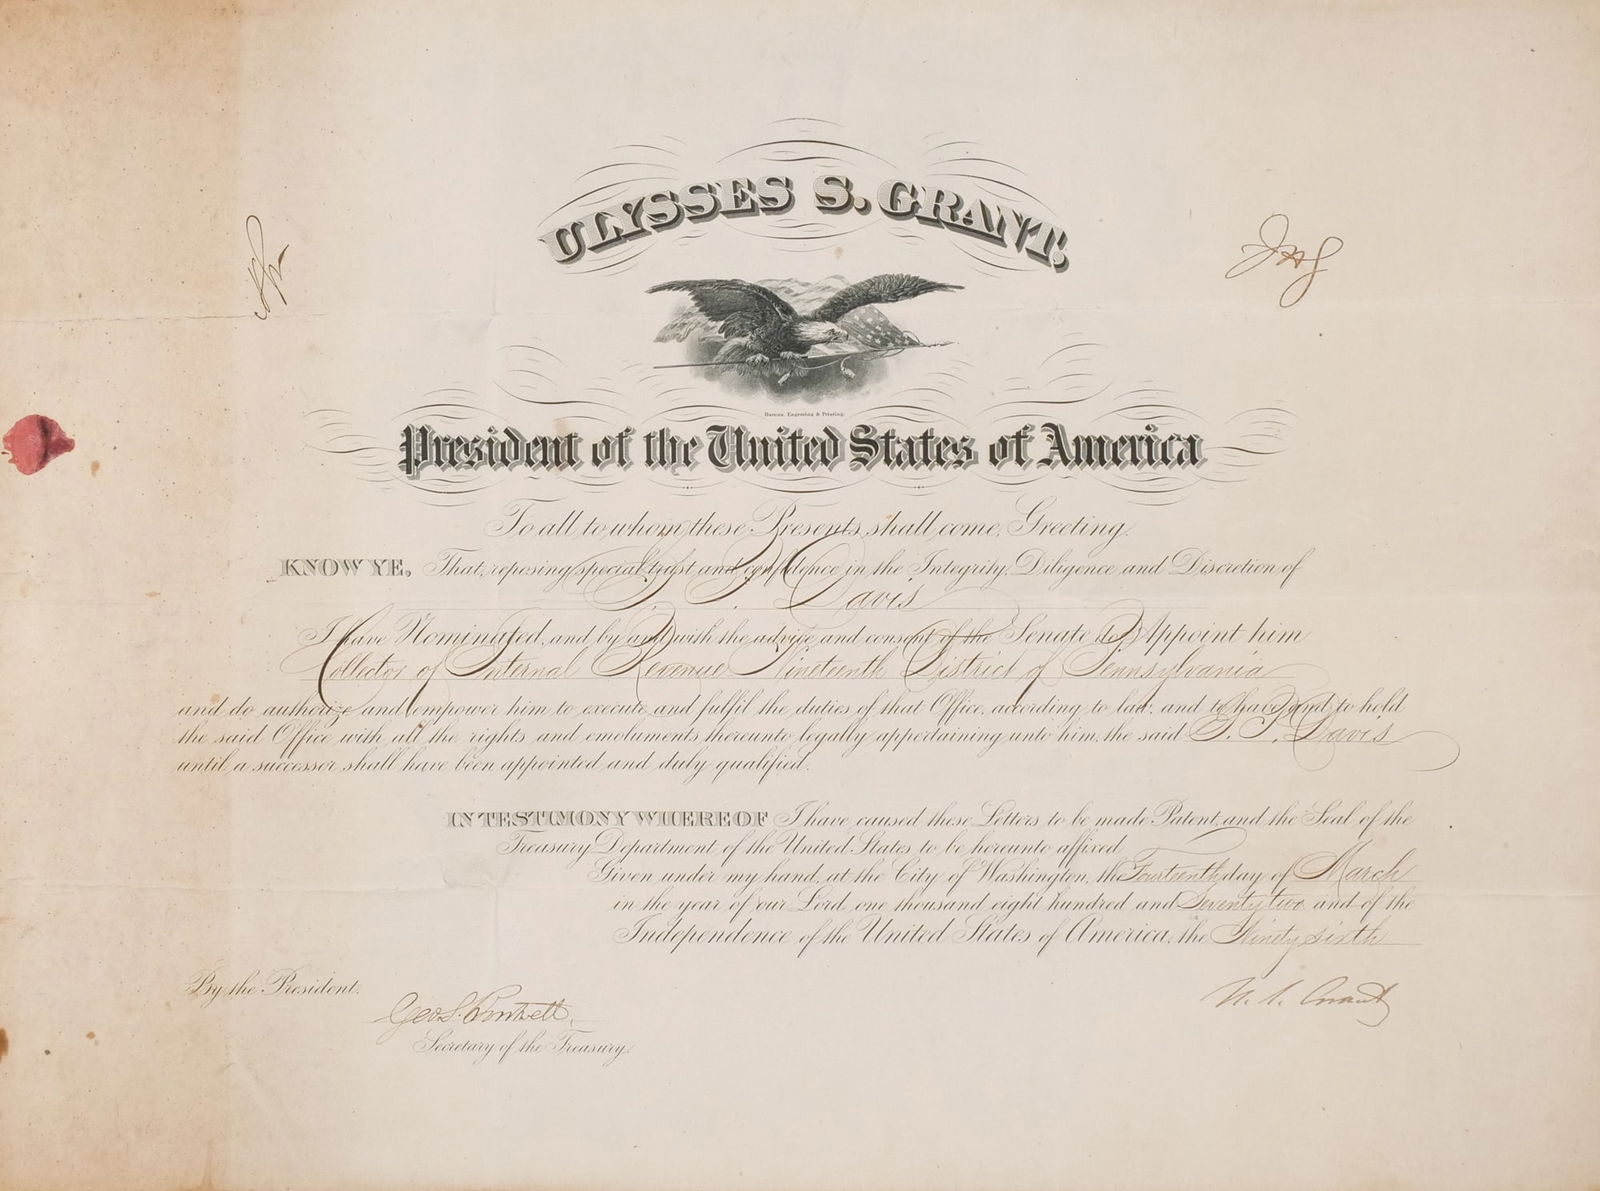 ULYSSES S. GRANT.
Bureau, Engraving & Printing.
President of the United States of America
To all to whom these Presents shall come, Greeting.
KNOW YE, That, reposing special trust and confidence in the Integrity, Diligence and Discretion of
Davis
I have Nominated, and by and with the advice and consent of the Senate do Appoint him
Collector of Internal Revenue Nineteenth District of Pennsylvania
and do authorize and empower him to execute and fulfil the duties of that Office, according to law, and to have and to hold
the said Office with all the rights and emoluments thereunto legally appertaining unto him, the said Davis
until a successor shall have been appointed and duly qualified.
IN TESTIMONY WHEREOF I have caused these Letters to be made Patent, and the Seal of the
Treasury Department of the United States to be hereunto affixed
Given under my hand, at the City of Washington, the Fourteenth day of March
in the year of our Lord one thousand eight hundred and Seventy two and of the
Independence of the United States of America, the Ninety sixth
By the President.
U. S. Grant
Geo S. Boutwell,
Secretary of the Treasury.